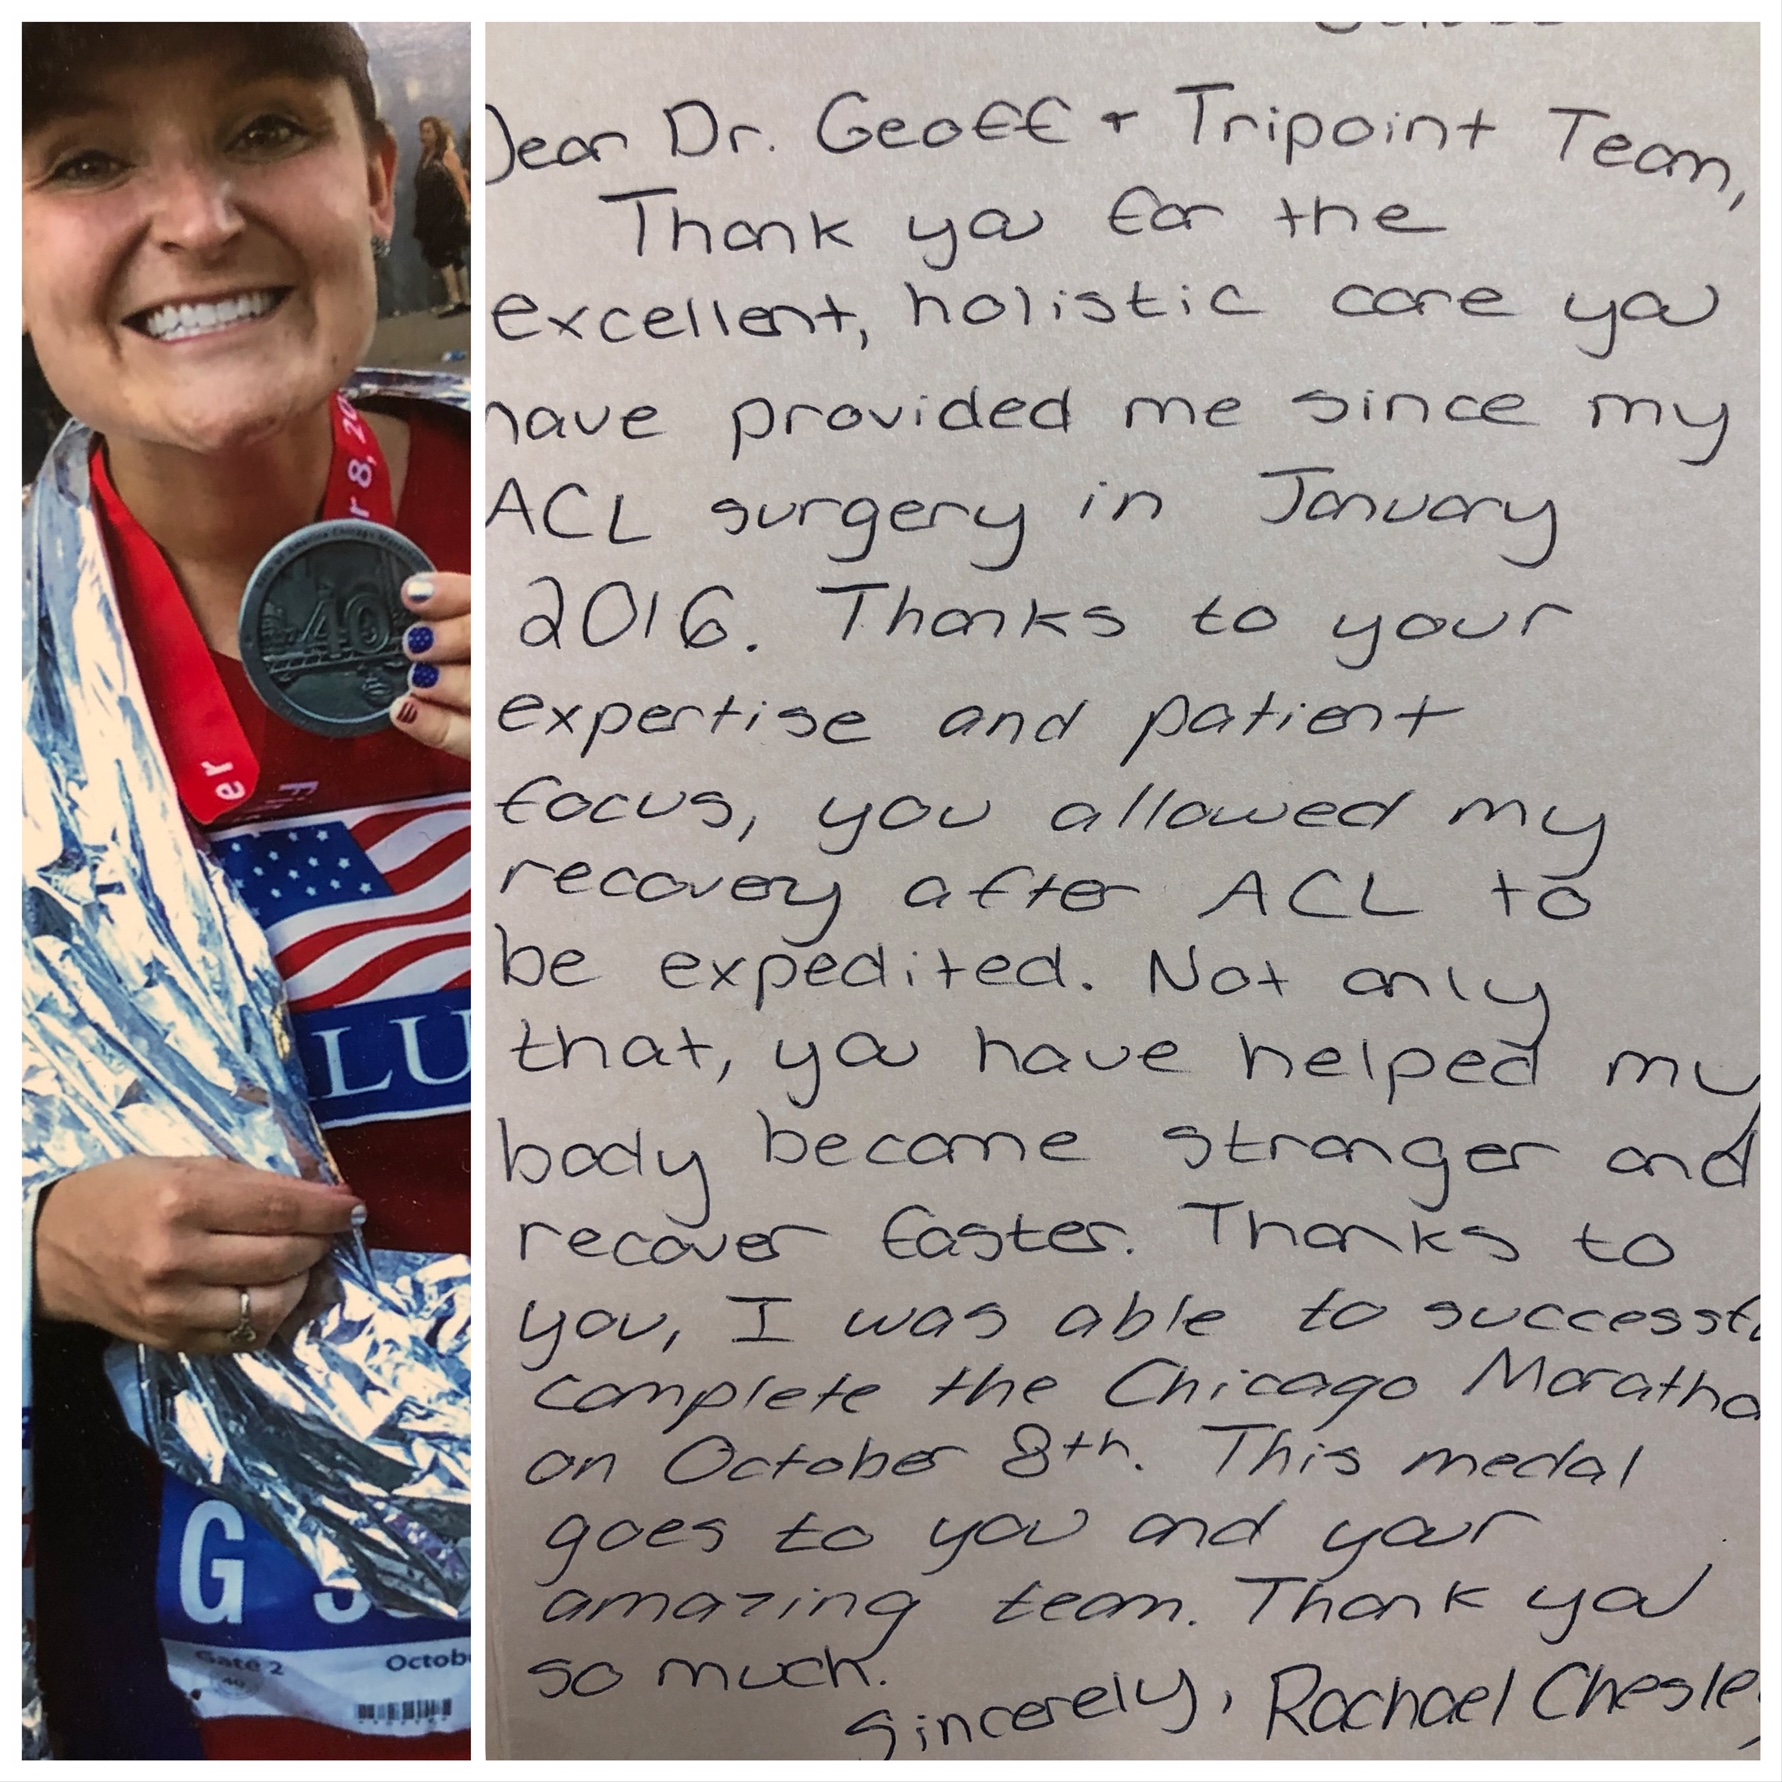 r 8, 20
40
er
LU
G
Gate 2
Octob
Dear Dr. Geoff + Tripoint Team,
Thank you for the
excellent, holistic care you
have provided me since my
ACL surgery in January
2016. Thanks to your
expertise and patient
focus, you allowed my
recovery after ACL to
be expedited. Not only
that, you have helped my
body become stronger and
recover faster. Thanks to
you, I was able to successf
complete the Chicago Maratho
on October 8th. This medal
goes to you and your
amazing team. Thank you
so much.
Sincerely, Rachael Chesley